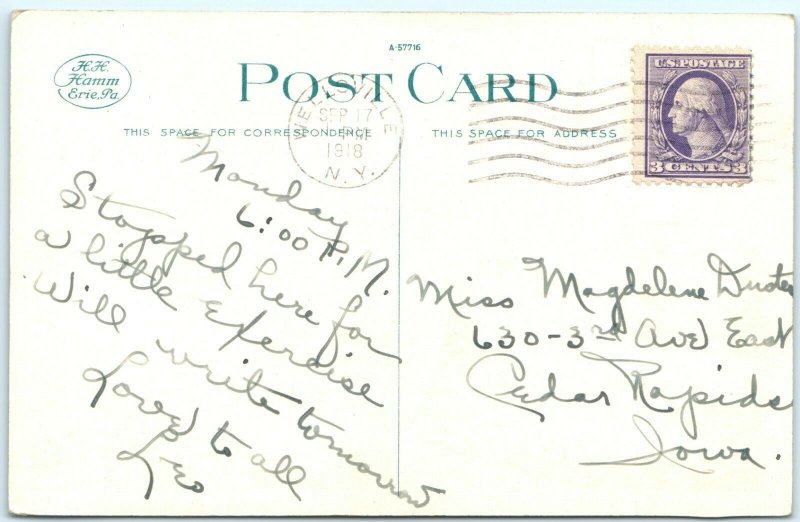 H.H.
Hamm
Erie, Pa.
A-57716
POST CARD
THIS SPACE FOR CORRESPONDENCE
THIS SPACE FOR ADDRESS
WELLSVILLE
SEP 17
1918
N.Y.
U.S. POSTAGE
3 CENTS 3
Monday
6:00 P.M.
Stopped here for
a little exercise
Will write tomorrow
Love to all
Leo
Miss Magdelene Duster
630-3rd Ave East
Cedar Rapids
Iowa.